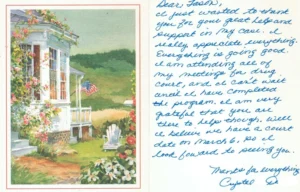 Dear Jason,
I just wanted to thank
you for your great help and
support in my case. I
really appreciate everything.
Everything is going good.
I am attending all of
my meetings for drug
court, and I can't wait
until I have completed
the program. I am very
grateful that you are
there to help though. Well
I believe we have a court
date on March 6. So I
look forward to seeing you.
Thanks for everything
Crystal